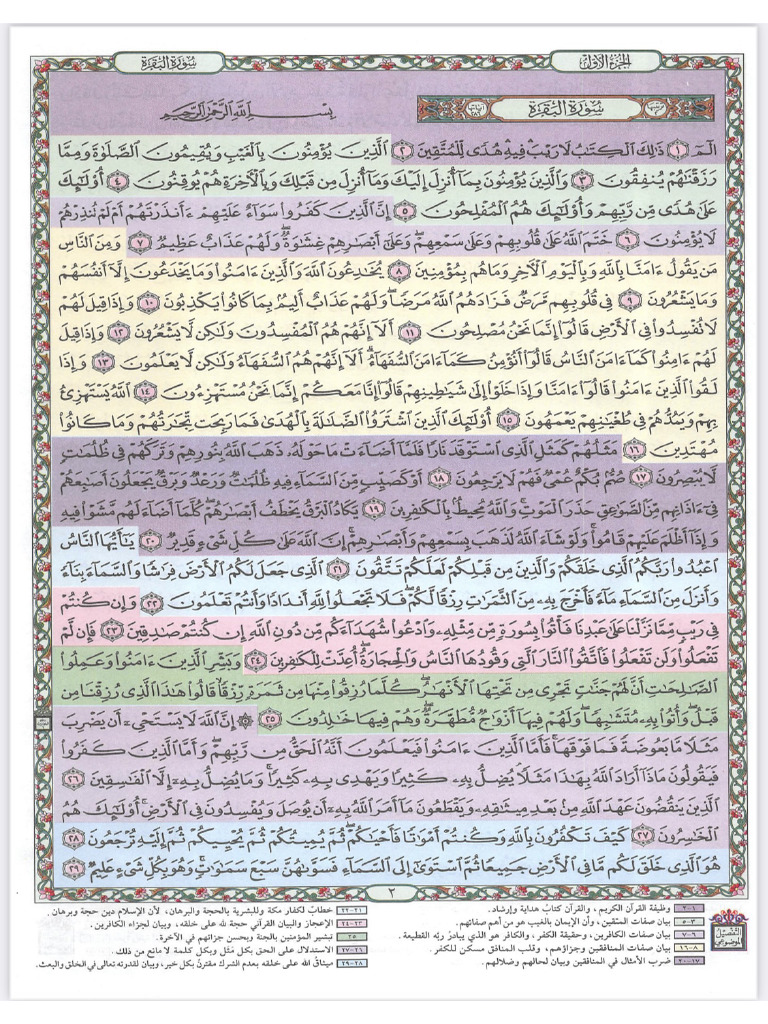 سُورَةُ البَقَرَةِ
الجُزءُ الأَوَّلُ
سُورَةُ البَقَرَةِ
بِسْمِ اللَّهِ الرَّحْمَٰنِ الرَّحِيمِ
الٓمٓ ١ ذَٰلِكَ الْكِتَٰبُ لَا رَيْبَ فِيهِ هُدًى لِّلْمُتَّقِينَ ٢ الَّذِينَ يُؤْمِنُونَ بِالْغَيْبِ وَيُقِيمُونَ الصَّلَوٰةَ وَمِمَّا
رَزَقْنَٰهُمْ يُنفِقُونَ ٣ وَالَّذِينَ يُؤْمِنُونَ بِمَآ أُنزِلَ إِلَيْكَ وَمَآ أُنزِلَ مِن قَبْلِكَ وَبِالْآخِرَةِ هُمْ يُوقِنُونَ ٤ أُوْلَٰٓئِكَ
عَلَىٰ هُدًى مِّن رَّبِّهِمْ وَأُوْلَٰٓئِكَ هُمُ الْمُفْلِحُونَ ٥ إِنَّ الَّذِينَ كَفَرُوا سَوَآءٌ عَلَيْهِمْ ءَأَنذَرْتَهُمْ أَمْ لَمْ تُنذِرْهُمْ
لَا يُؤْمِنُونَ ٦ خَتَمَ اللَّهُ عَلَىٰ قُلُوبِهِمْ وَعَلَىٰ سَمْعِهِمْ وَعَلَىٰٓ أَبْصَٰرِهِمْ غِشَٰوَةٌ وَلَهُمْ عَذَابٌ عَظِيمٌ ٧ وَمِنَ النَّاسِ
مَن يَقُولُ ءَامَنَّا بِاللَّهِ وَبِالْيَوْمِ الْآخِرِ وَمَا هُم بِمُؤْمِنِينَ ٨ يُخَٰدِعُونَ اللَّهَ وَالَّذِينَ ءَامَنُوا وَمَا يَخْدَعُونَ إِلَّآ أَنفُسَهُمْ
وَمَا يَشْعُرُونَ ٩ فِي قُلُوبِهِم مَّرَضٌ فَزَادَهُمُ اللَّهُ مَرَضًا وَلَهُمْ عَذَابٌ أَلِيمٌۢ بِمَا كَانُوا يَكْذِبُونَ ١٠ وَإِذَا قِيلَ لَهُمْ
لَا تُفْسِدُوا فِي الْأَرْضِ قَالُوٓا إِنَّمَا نَحْنُ مُصْلِحُونَ ١١ أَلَآ إِنَّهُمْ هُمُ الْمُفْسِدُونَ وَلَٰكِن لَّا يَشْعُرُونَ ١٢ وَإِذَا قِيلَ
لَهُمْ ءَامِنُوا كَمَآ ءَامَنَ النَّاسُ قَالُوٓا أَنُؤْمِنُ كَمَآ ءَامَنَ السُّفَهَآءُ أَلَآ إِنَّهُمْ هُمُ السُّفَهَآءُ وَلَٰكِن لَّا يَعْلَمُونَ ١٣ وَإِذَا
لَقُوا الَّذِينَ ءَامَنُوا قَالُوٓا ءَامَنَّا وَإِذَا خَلَوْا إِلَىٰ شَيَٰطِينِهِمْ قَالُوٓا إِنَّا مَعَكُمْ إِنَّمَا نَحْنُ مُسْتَهْزِءُونَ ١٤ اللَّهُ يَسْتَهْزِئُ
بِهِمْ وَيَمُدُّهُمْ فِي طُغْيَٰنِهِمْ يَعْمَهُونَ ١٥ أُوْلَٰٓئِكَ الَّذِينَ اشْتَرَوُا الضَّلَٰلَةَ بِالْهُدَىٰ فَمَا رَبِحَت تِّجَٰرَتُهُمْ وَمَا كَانُوا
مُهْتَدِينَ ١٦ مَثَلُهُمْ كَمَثَلِ الَّذِي اسْتَوْقَدَ نَارًا فَلَمَّآ أَضَآءَتْ مَا حَوْلَهُ ذَهَبَ اللَّهُ بِنُورِهِمْ وَتَرَكَهُمْ فِي ظُلُمَٰتٍ
لَّا يُبْصِرُونَ ١٧ صُمٌّۢ بُكْمٌ عُمْيٌ فَهُمْ لَا يَرْجِعُونَ ١٨ أَوْ كَصَيِّبٍ مِّنَ السَّمَآءِ فِيهِ ظُلُمَٰتٌ وَرَعْدٌ وَبَرْقٌ يَجْعَلُونَ أَصَٰبِعَهُمْ
فِيٓ ءَاذَانِهِم مِّنَ الصَّوَٰعِقِ حَذَرَ الْمَوْتِ وَاللَّهُ مُحِيطٌۢ بِالْكَٰفِرِينَ ١٩ يَكَادُ الْبَرْقُ يَخْطَفُ أَبْصَٰرَهُمْ كُلَّمَآ أَضَآءَ لَهُم مَّشَوْا فِيهِ
وَإِذَآ أَظْلَمَ عَلَيْهِمْ قَامُوا وَلَوْ شَآءَ اللَّهُ لَذَهَبَ بِسَمْعِهِمْ وَأَبْصَٰرِهِمْ إِنَّ اللَّهَ عَلَىٰ كُلِّ شَيْءٍ قَدِيرٌ ٢٠ يَٰٓأَيُّهَا النَّاسُ
اعْبُدُوا رَبَّكُمُ الَّذِي خَلَقَكُمْ وَالَّذِينَ مِن قَبْلِكُمْ لَعَلَّكُمْ تَتَّقُونَ ٢١ الَّذِي جَعَلَ لَكُمُ الْأَرْضَ فِرَٰشًا وَالسَّمَآءَ بِنَآءً
وَأَنزَلَ مِنَ السَّمَآءِ مَآءً فَأَخْرَجَ بِهِ مِنَ الثَّمَرَٰتِ رِزْقًا لَّكُمْ فَلَا تَجْعَلُوا لِلَّهِ أَندَادًا وَأَنتُمْ تَعْلَمُونَ ٢٢ وَإِن كُنتُمْ
فِي رَيْبٍ مِّمَّا نَزَّلْنَا عَلَىٰ عَبْدِنَا فَأْتُوا بِسُورَةٍ مِّن مِّثْلِهِ وَادْعُوا شُهَدَآءَكُم مِّن دُونِ اللَّهِ إِن كُنتُمْ صَٰدِقِينَ ٢٣ فَإِن لَّمْ
تَفْعَلُوا وَلَن تَفْعَلُوا فَاتَّقُوا النَّارَ الَّتِي وَقُودُهَا النَّاسُ وَالْحِجَارَةُ أُعِدَّتْ لِلْكَٰفِرِينَ ٢٤ وَبَشِّرِ الَّذِينَ ءَامَنُوا وَعَمِلُوا
الصَّٰلِحَٰتِ أَنَّ لَهُمْ جَنَّٰتٍ تَجْرِي مِن تَحْتِهَا الْأَنْهَٰرُ كُلَّمَا رُزِقُوا مِنْهَا مِن ثَمَرَةٍ رِّزْقًا قَالُوا هَٰذَا الَّذِي رُزِقْنَا مِن
قَبْلُ وَأُتُوا بِهِ مُتَشَٰبِهًا وَلَهُمْ فِيهَآ أَزْوَٰجٌ مُّطَهَّرَةٌ وَهُمْ فِيهَا خَٰلِدُونَ ٢٥ ۞ إِنَّ اللَّهَ لَا يَسْتَحْيِۦٓ أَن يَضْرِبَ
مَثَلًا مَّا بَعُوضَةً فَمَا فَوْقَهَا فَأَمَّا الَّذِينَ ءَامَنُوا فَيَعْلَمُونَ أَنَّهُ الْحَقُّ مِن رَّبِّهِمْ وَأَمَّا الَّذِينَ كَفَرُوا
فَيَقُولُونَ مَاذَآ أَرَادَ اللَّهُ بِهَٰذَا مَثَلًا يُضِلُّ بِهِ كَثِيرًا وَيَهْدِي بِهِ كَثِيرًا وَمَا يُضِلُّ بِهِ إِلَّا الْفَٰسِقِينَ ٢٦
الَّذِينَ يَنقُضُونَ عَهْدَ اللَّهِ مِنۢ بَعْدِ مِيثَٰقِهِ وَيَقْطَعُونَ مَآ أَمَرَ اللَّهُ بِهِ أَن يُوصَلَ وَيُفْسِدُونَ فِي الْأَرْضِ أُوْلَٰٓئِكَ هُمُ
الْخَٰسِرُونَ ٢٧ كَيْفَ تَكْفُرُونَ بِاللَّهِ وَكُنتُمْ أَمْوَٰتًا فَأَحْيَٰكُمْ ثُمَّ يُمِيتُكُمْ ثُمَّ يُحْيِيكُمْ ثُمَّ إِلَيْهِ تُرْجَعُونَ ٢٨
هُوَ الَّذِي خَلَقَ لَكُم مَّا فِي الْأَرْضِ جَمِيعًا ثُمَّ اسْتَوَىٰٓ إِلَى السَّمَآءِ فَسَوَّىٰهُنَّ سَبْعَ سَمَٰوَٰتٍ وَهُوَ بِكُلِّ شَيْءٍ عَلِيمٌ ٢٩
٣
التفصيل
الموضوعي
١-٢ وظيفة القرآن الكريم، والقرآن كتابُ هداية وإرشاد.
٣-٥ بيان صفات المتقين، وأن الإيمان بالغيب هو من أهم صفاتهم.
٦-٧ بيان صفات الكافرين، وحقيقة الكفر، والكافر هو الذي يبادرُ ربَّه القطيعة.
٨-١٦ بيان صفات المنافقين وجزاؤهم، وقلب المنافق مسكن للكفر.
١٧-٢٠ ضرب الأمثال في المنافقين وبيان لحالهم وضلالهم.
٢١-٢٢ خطابٌ لكفار مكة وللبشرية بالحجة والبرهان، لأن الإسلام دين حجة وبرهان.
٢٣-٢٤ الإعجاز والبيان القرآني حجة لله على خلقه، وبيان لجزاء الكافرين.
٢٥ تبشير المؤمنين بالجنة وبحسن جزائهم في الآخرة.
٢٦-٢٧ الاستدلال على الحق بكل مثل وبكل كلمة لا مانع من ذلك.
٢٨-٢٩ ميثاق الله على خلقه بعدم الشرك مقترنٌ بكل خير، وبيان لقدرته تعالى في الخلق والبعث.